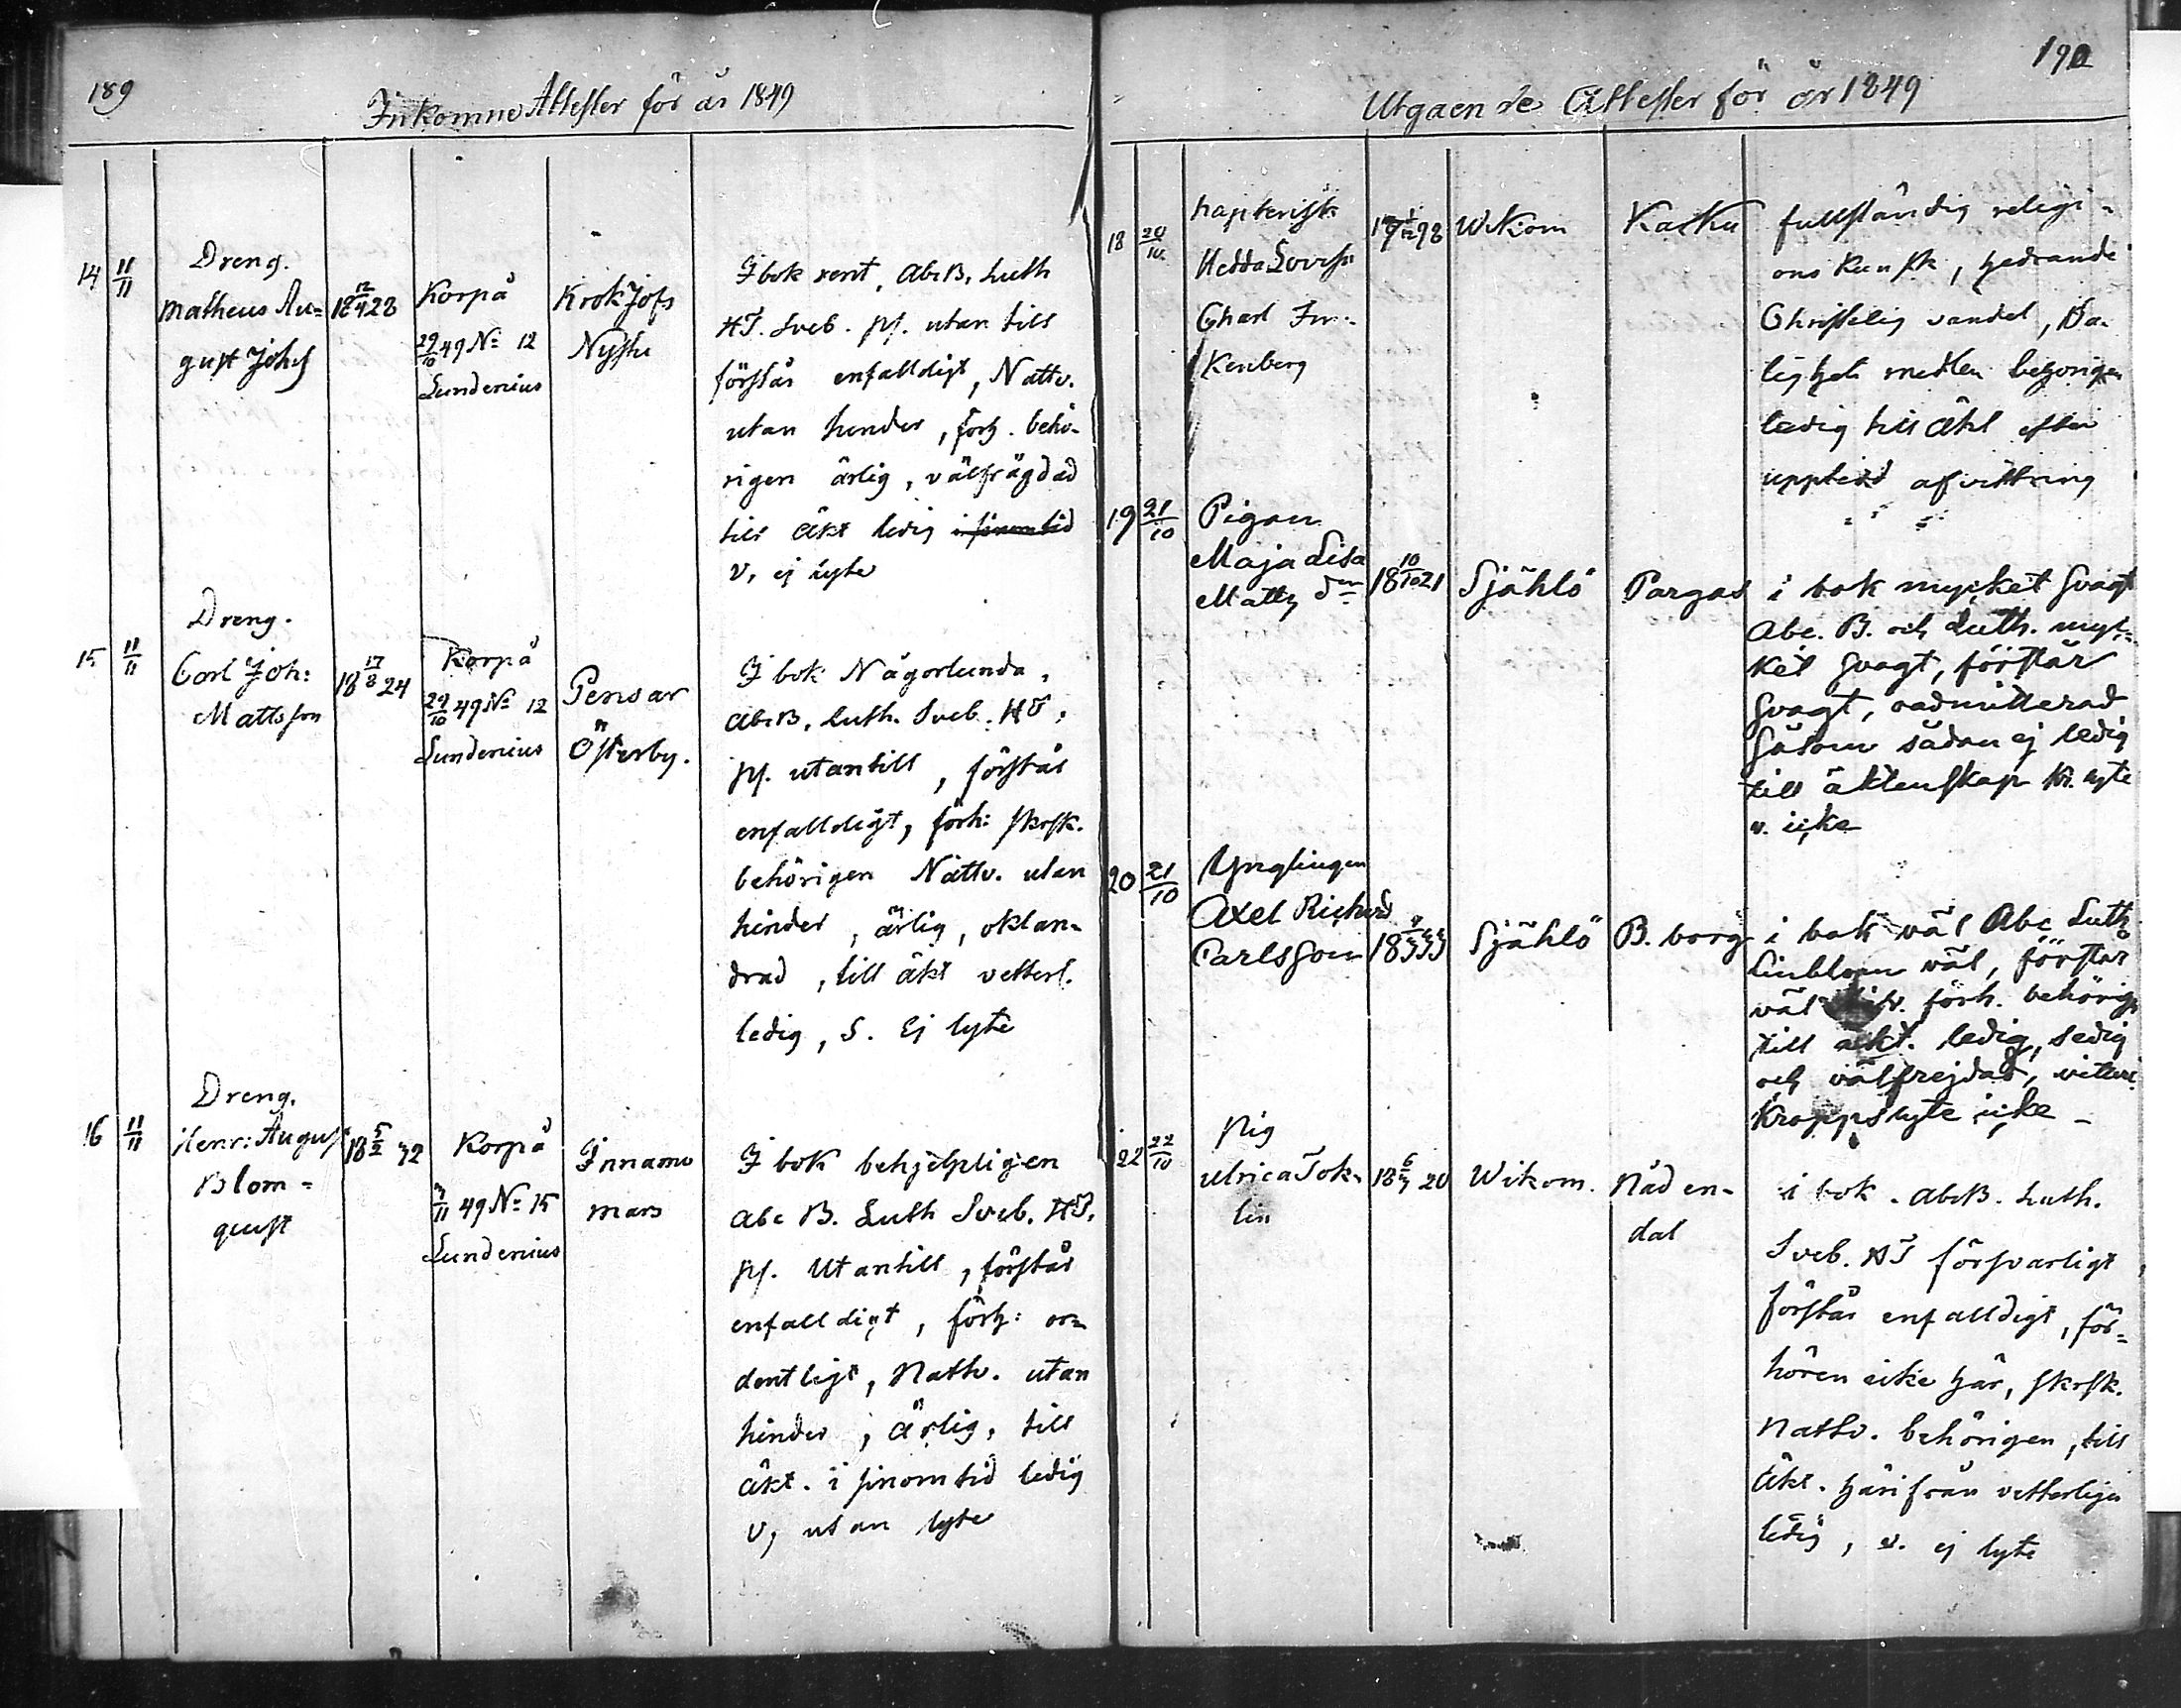 189
Inkomne Attester för år 1849
14 11/11
Dreng.
Matheus Au=
gust Johss
18 12/4 28
Korpå
29/10 49 No 12
Lundenius
Krok Jofs
Nystu
I bok rent, Abc B, Luth
HT. Sveb. ps. utan till
förstår enfalldigt, Nattv.
utan hinder, förh. behö-
rigen ärlig, välfrägdad
till äkt ledig i sinom tid
V, ej lyte
15 11/11
Dreng.
Carl Joh:
Mattsson
18 17/8 24
Korpå
29/10 49 No 12
Lundenius
Pensar
Österby.
I bok Någorlunda,
Abc B, Luth. Sveb. HT,
ps. utantill, förstår
enfalldigt, förh: skrsk.
behörigen Nattv. utan
hinder, ärlig, oklan-
drad, till äkt vetterl.
ledig, S. Ej lyte
16 11/11
Dreng.
Henr: August
Blom=
quist
18 5/2 32
Korpå
9/11 49 No 15
Lundenius
Innamo
mars
I bok behjelpligen
Abc B. Luth Sveb. HT,
ps. Utantill, förstår
enfalldigt, förh: or=
dentligt, Nattv. utan
hinder, ärlig, till
äkt. i sinom tid ledig
V, utan lyte
190
Utgaende Attester för år 1849
18 20/10
Hedda Lovisa
Charl
kenberg
98
Wikom
Kaku
fullständig religi-
ons kunsk, hedrande
Christelig vandel,
ledig till äkt efter
afvittring
19 21/10
Pigan
Maja Lisa
Matts dr
18 10/10 21
Själö
Pargas
i bok mycket svagt
Abc. B. och Luth. myc=
ket svagt, förstår
svagt, oadmitterad
såsom sådan ej ledig
till äktenskap kr. lyte
v. icke
20 21/10
Ynglingen
Axel Richard
Carlsson
18 33
Själö
B. borg
i bok väl Abc Luth
Linblom väl, förstår
väl förh. behörig
till äkt. ledig, sedig
och välfrejdad, vitterl
Kroppslyte icke -
22 22/10
Pig
Ulrica Tok-
lin
20
Wikom.
Nåden-
dal
i bok. Abc B. Luth.
Sveb. HT försvarligt,
förstår enfalldigt, för=
hören icke här, skrsk.
Nattv. behörigen, till
äkt. härifrån vetterligen
ledig, v. ej lyte